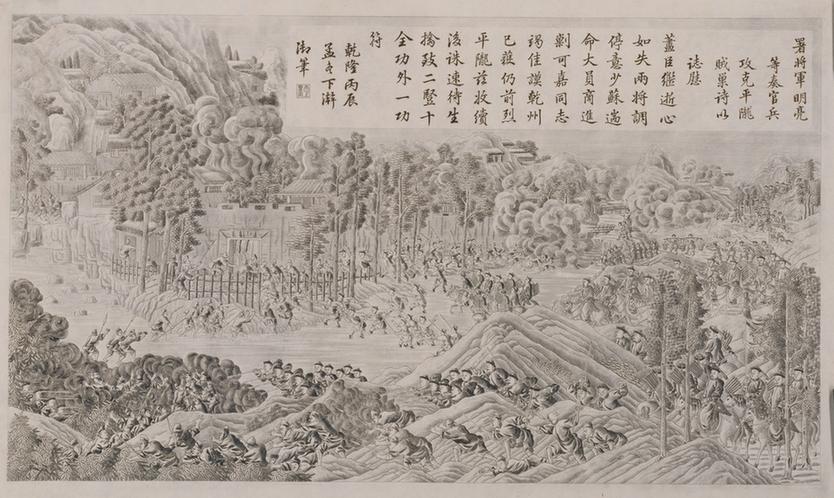 署將軍明亮
等奏官兵
攻克平隴
賊巢詩以
誌慰
藎臣繼逝心
如失兩將調
停意少蘇遄
命大員商進
剿可嘉同志
竭佳謨乾州
已蕆仍前烈
平隴茲收續
後誅速待生
擒致二豎十
全功外一功
符
乾隆丙辰
孟冬下澣
御筆